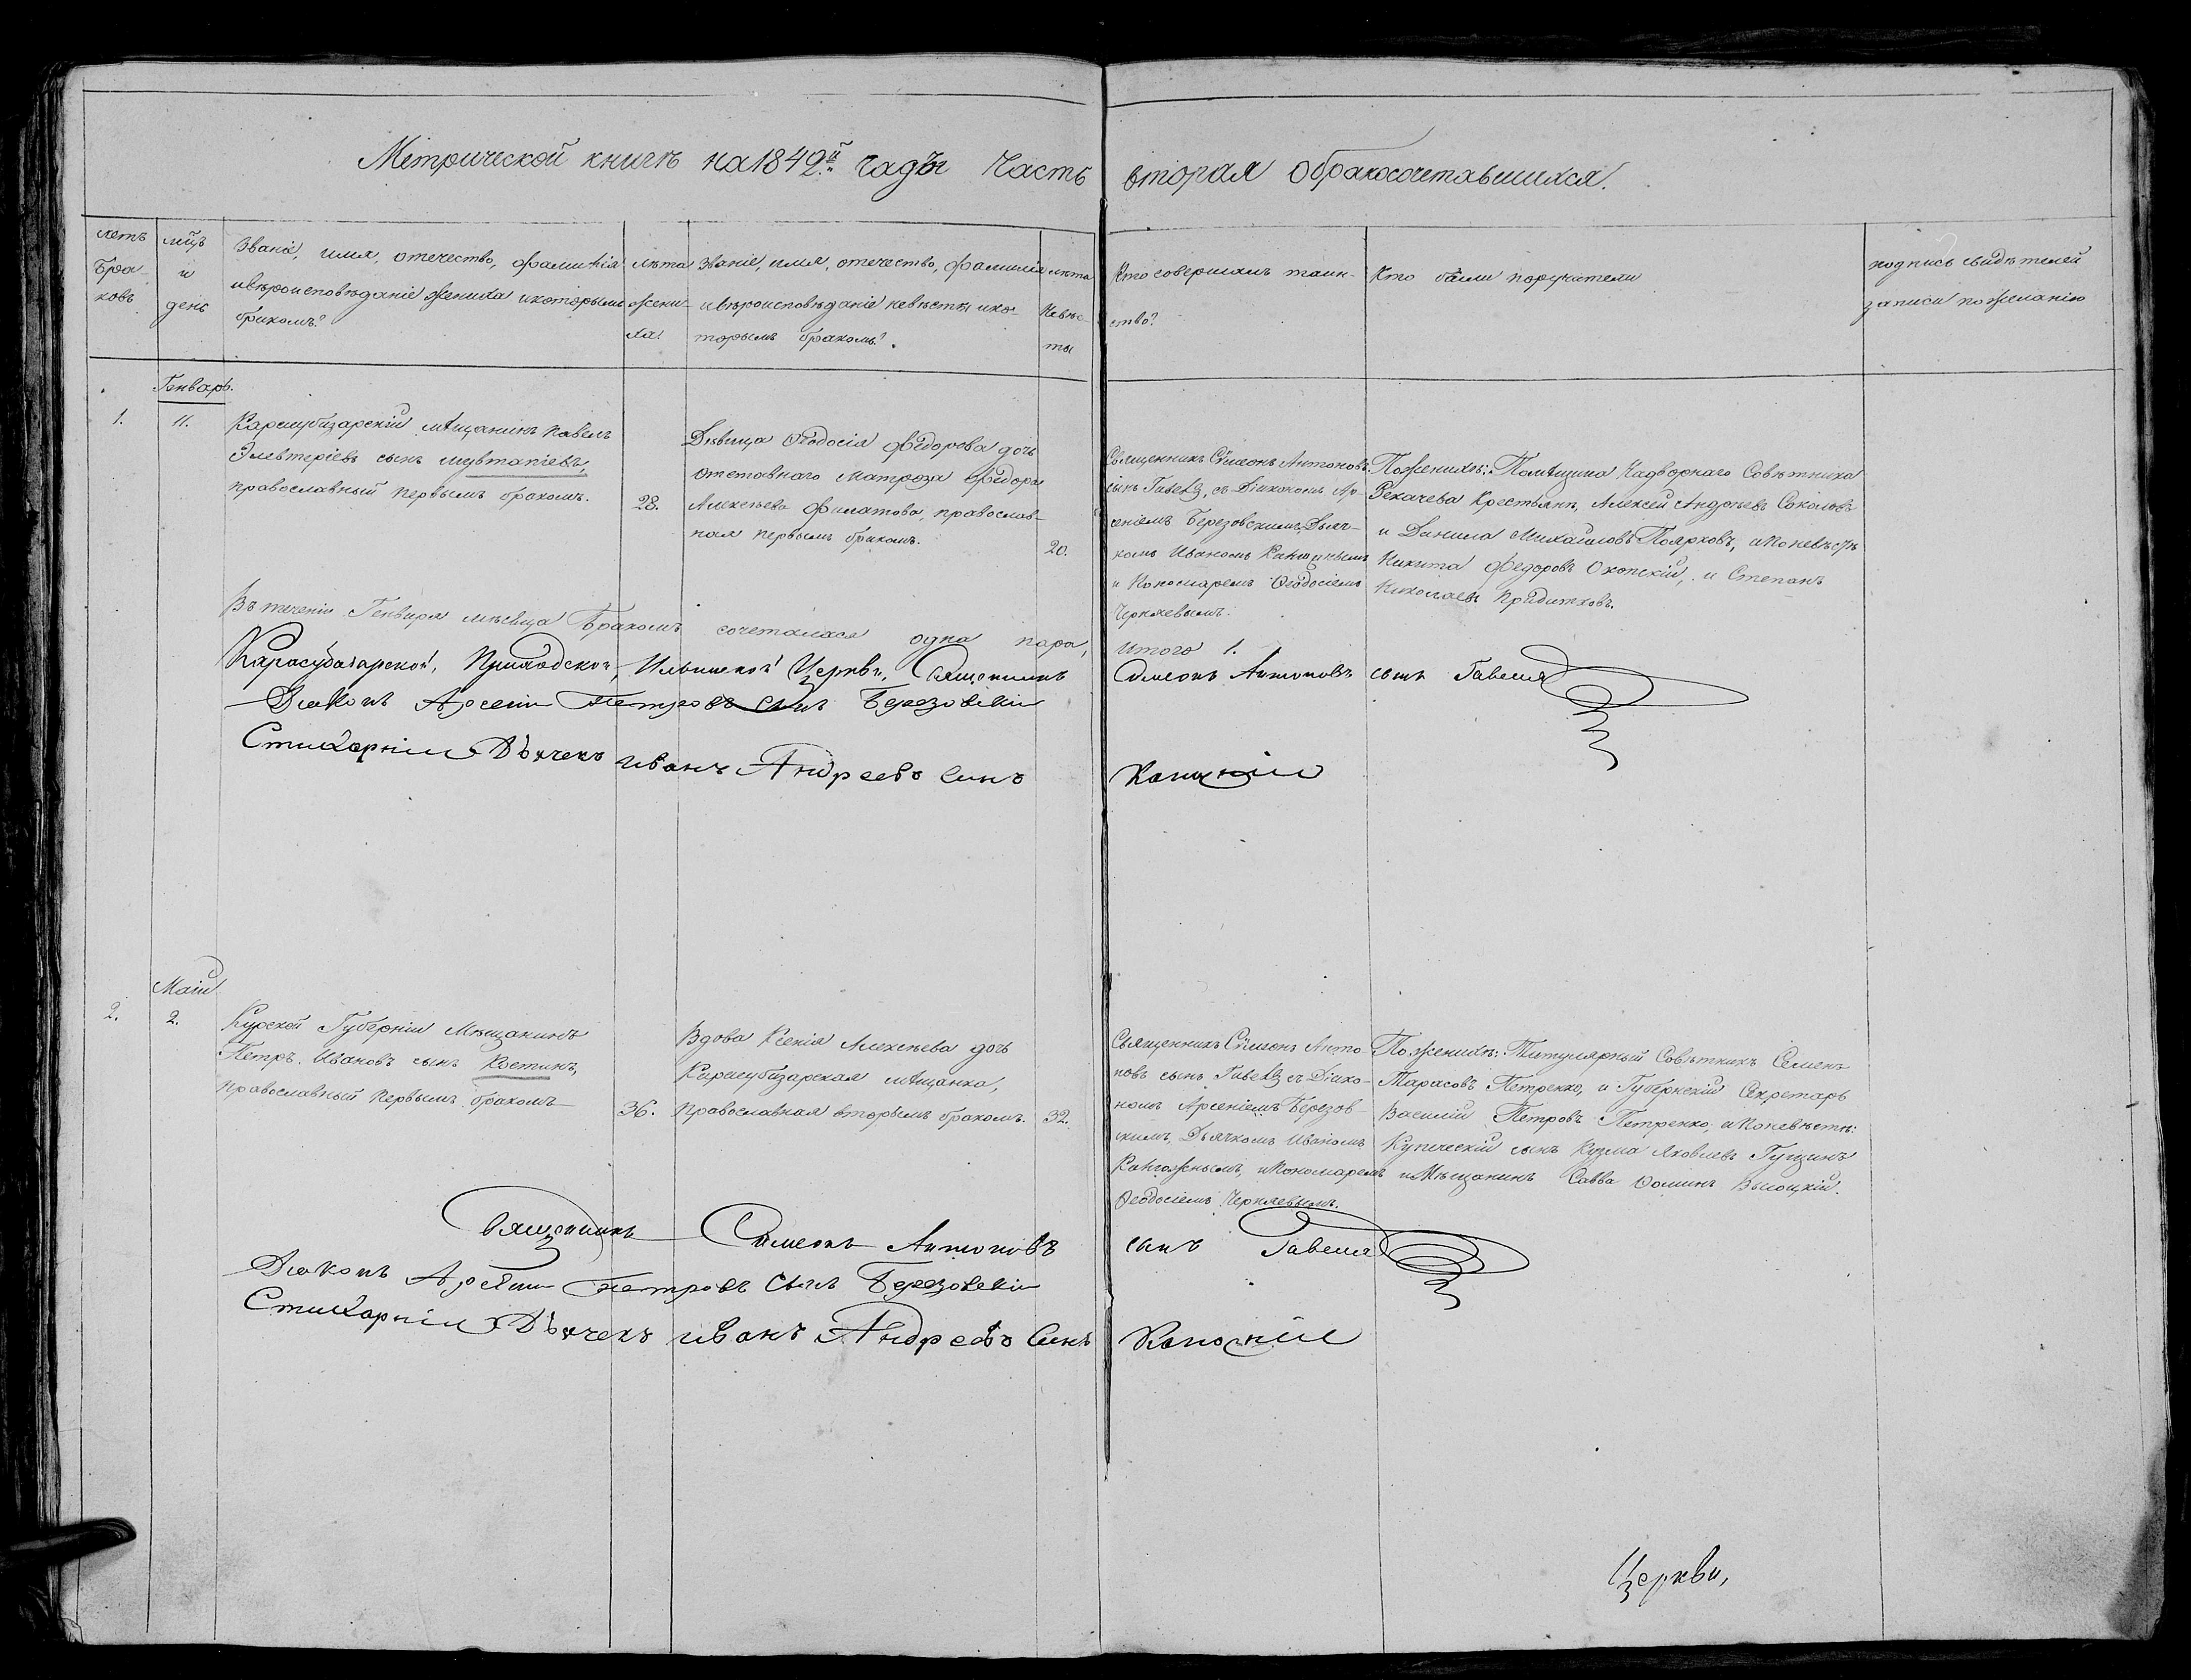 Метрической книги на 1842й годъ Часть вторая о бракосочетавшихся.
счетъ браковъ
мѣсяцъ и день
Званіе, имя, отечество, фамилія
и вѣроисповѣданіе жениха и которымъ
бракомъ?
лѣта
жениха?
Званіе, имя, отечество, фамилія
и вѣроисповѣданіе невѣсты и ко-
торымъ бракомъ?
лѣта
Невѣс-
ты
Кто совершалъ таин-
ство?
Кто были поручители
подпись свидѣтелей
записи по желанію
Генварь.
1.
11.
Карасубазарскій мѣщанинъ Павелъ
Элевтеріевъ сынъ
православный первымъ бракомъ.
28.
Дѣвица Ѳеодосія Федорова дочь
отставнаго матроза Федора
Алексѣева Филатова, православ-
ная первымъ бракомъ.
20.
Священникъ Сѵмеонъ Антоновъ
сынъ Гавеля, съ Діакономъ Ар-
сеніемъ Березовскимъ, Дьяч-
комъ Иваномъ
и Пономаремъ Ѳеодосіемъ
Черняевымъ.
По женихѣ: Помѣщика Надворнаго Совѣтника
Рекачева Крестьяне, Алексей Андреевъ Соколовъ
и Данила Михайловъ Поярковъ, и по невѣстѣ
Никита Федоровъ Охопскій, и Степанъ
Николаевъ
Въ теченіи Генваря мѣсяца Бракомъ сочеталася одна пара,
Итого 1.
Карасубазарской, Приходской, Ильинской Церкви, Священникъ Симеонъ Антоновъ сынъ Гавеля
Діаконъ Арсеній Петровъ сынъ Березовскій
Стихарній Дьячекъ Иванъ Андреевъ Синъ
Маій
2.
2.
Курской Губерніи Мѣщанинъ
Петръ Ивановъ сынъ Костинъ,
православный первымъ бракомъ
36.
Вдова Ксенія Алексѣева дочь
Карасубазарская мѣщанка,
православная вторымъ бракомъ.
32.
Священникъ Сѵмеонъ Анто-
новъ сынъ Гавеля съ Діако-
номъ Арсеніемъ Березов-
скимъ, Дьячкомъ Иваномъ
и Пономаремъ
Ѳеодосіемъ Черняевымъ.
По женихѣ: Титулярный Совѣтникъ Семенъ
Тарасовъ Петренко, и Губернскій Секретарь
Василій Петровъ Петренко, и по невѣстѣ:
Купеческій сынъ Кузма Яковлевъ Гущинъ
и Мѣщанинъ Савва Ѳоминъ Высоцкій.
Священникъ Симеонъ Антоновъ сынъ Гавеля
Діаконъ Арсеній Петровъ сынъ Березовскій
Стихарній Дьячекъ Иванъ Андреевъ Синъ
Церкви,